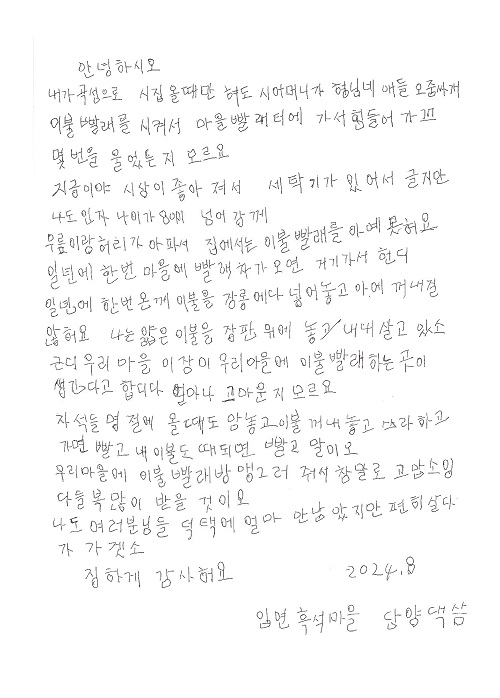 안녕하시오
내가 곡성으로 시집 올때만 혀도 시어머니가 형님네 애들 오줌싸게
이불 빨래를 시켜서 마을 빨래터에 가서 힘들어 가꼬
몇번을 울었는지 모르요
지금이야 시상이 좋아 져서 세탁기가 있어서 글지만
나도 인자 나이가 80이 넘어 감께
무릎이랑 허리가 아파서 집에서는 이불 빨래를 아예 못허요
일년에 한번 마을에 빨래차가 오면 거기가서 헌디
일년에 한번 온게 이불을 장롱에다 넣어놓고 아예 꺼내질
않허요 나는 얇은 이불을 장판 위에 놓고 내내 살고 있소
근디 우리 마을 이장이 우리마을에 이불 빨래하는 곳이
생긴다고 합디다 얼마나 고마운지 모르요
자석들 명절에 올때도 맘놓고 이불 꺼내 놓고 쓰라하고
가면 빨고 내 이불도 때되면 빨고 할이오
우리마을에 이불 빨래방 맹그러 줘서 참말로 고맙소잉
다들 복많이 받을 것이오
나도 여러분님들 덕택에 얼마 안남았지만 편히 살다
가 가겟소
집하게 감사허요 2024.8
입면 흑석마을 단양댁 씀